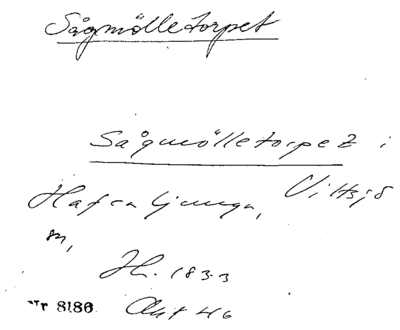 Sågmölletorpet
Sågmölletorpet i
Hafraljunga, Vittsjö
sn,
H. 1833
nr 8186 Akt 46